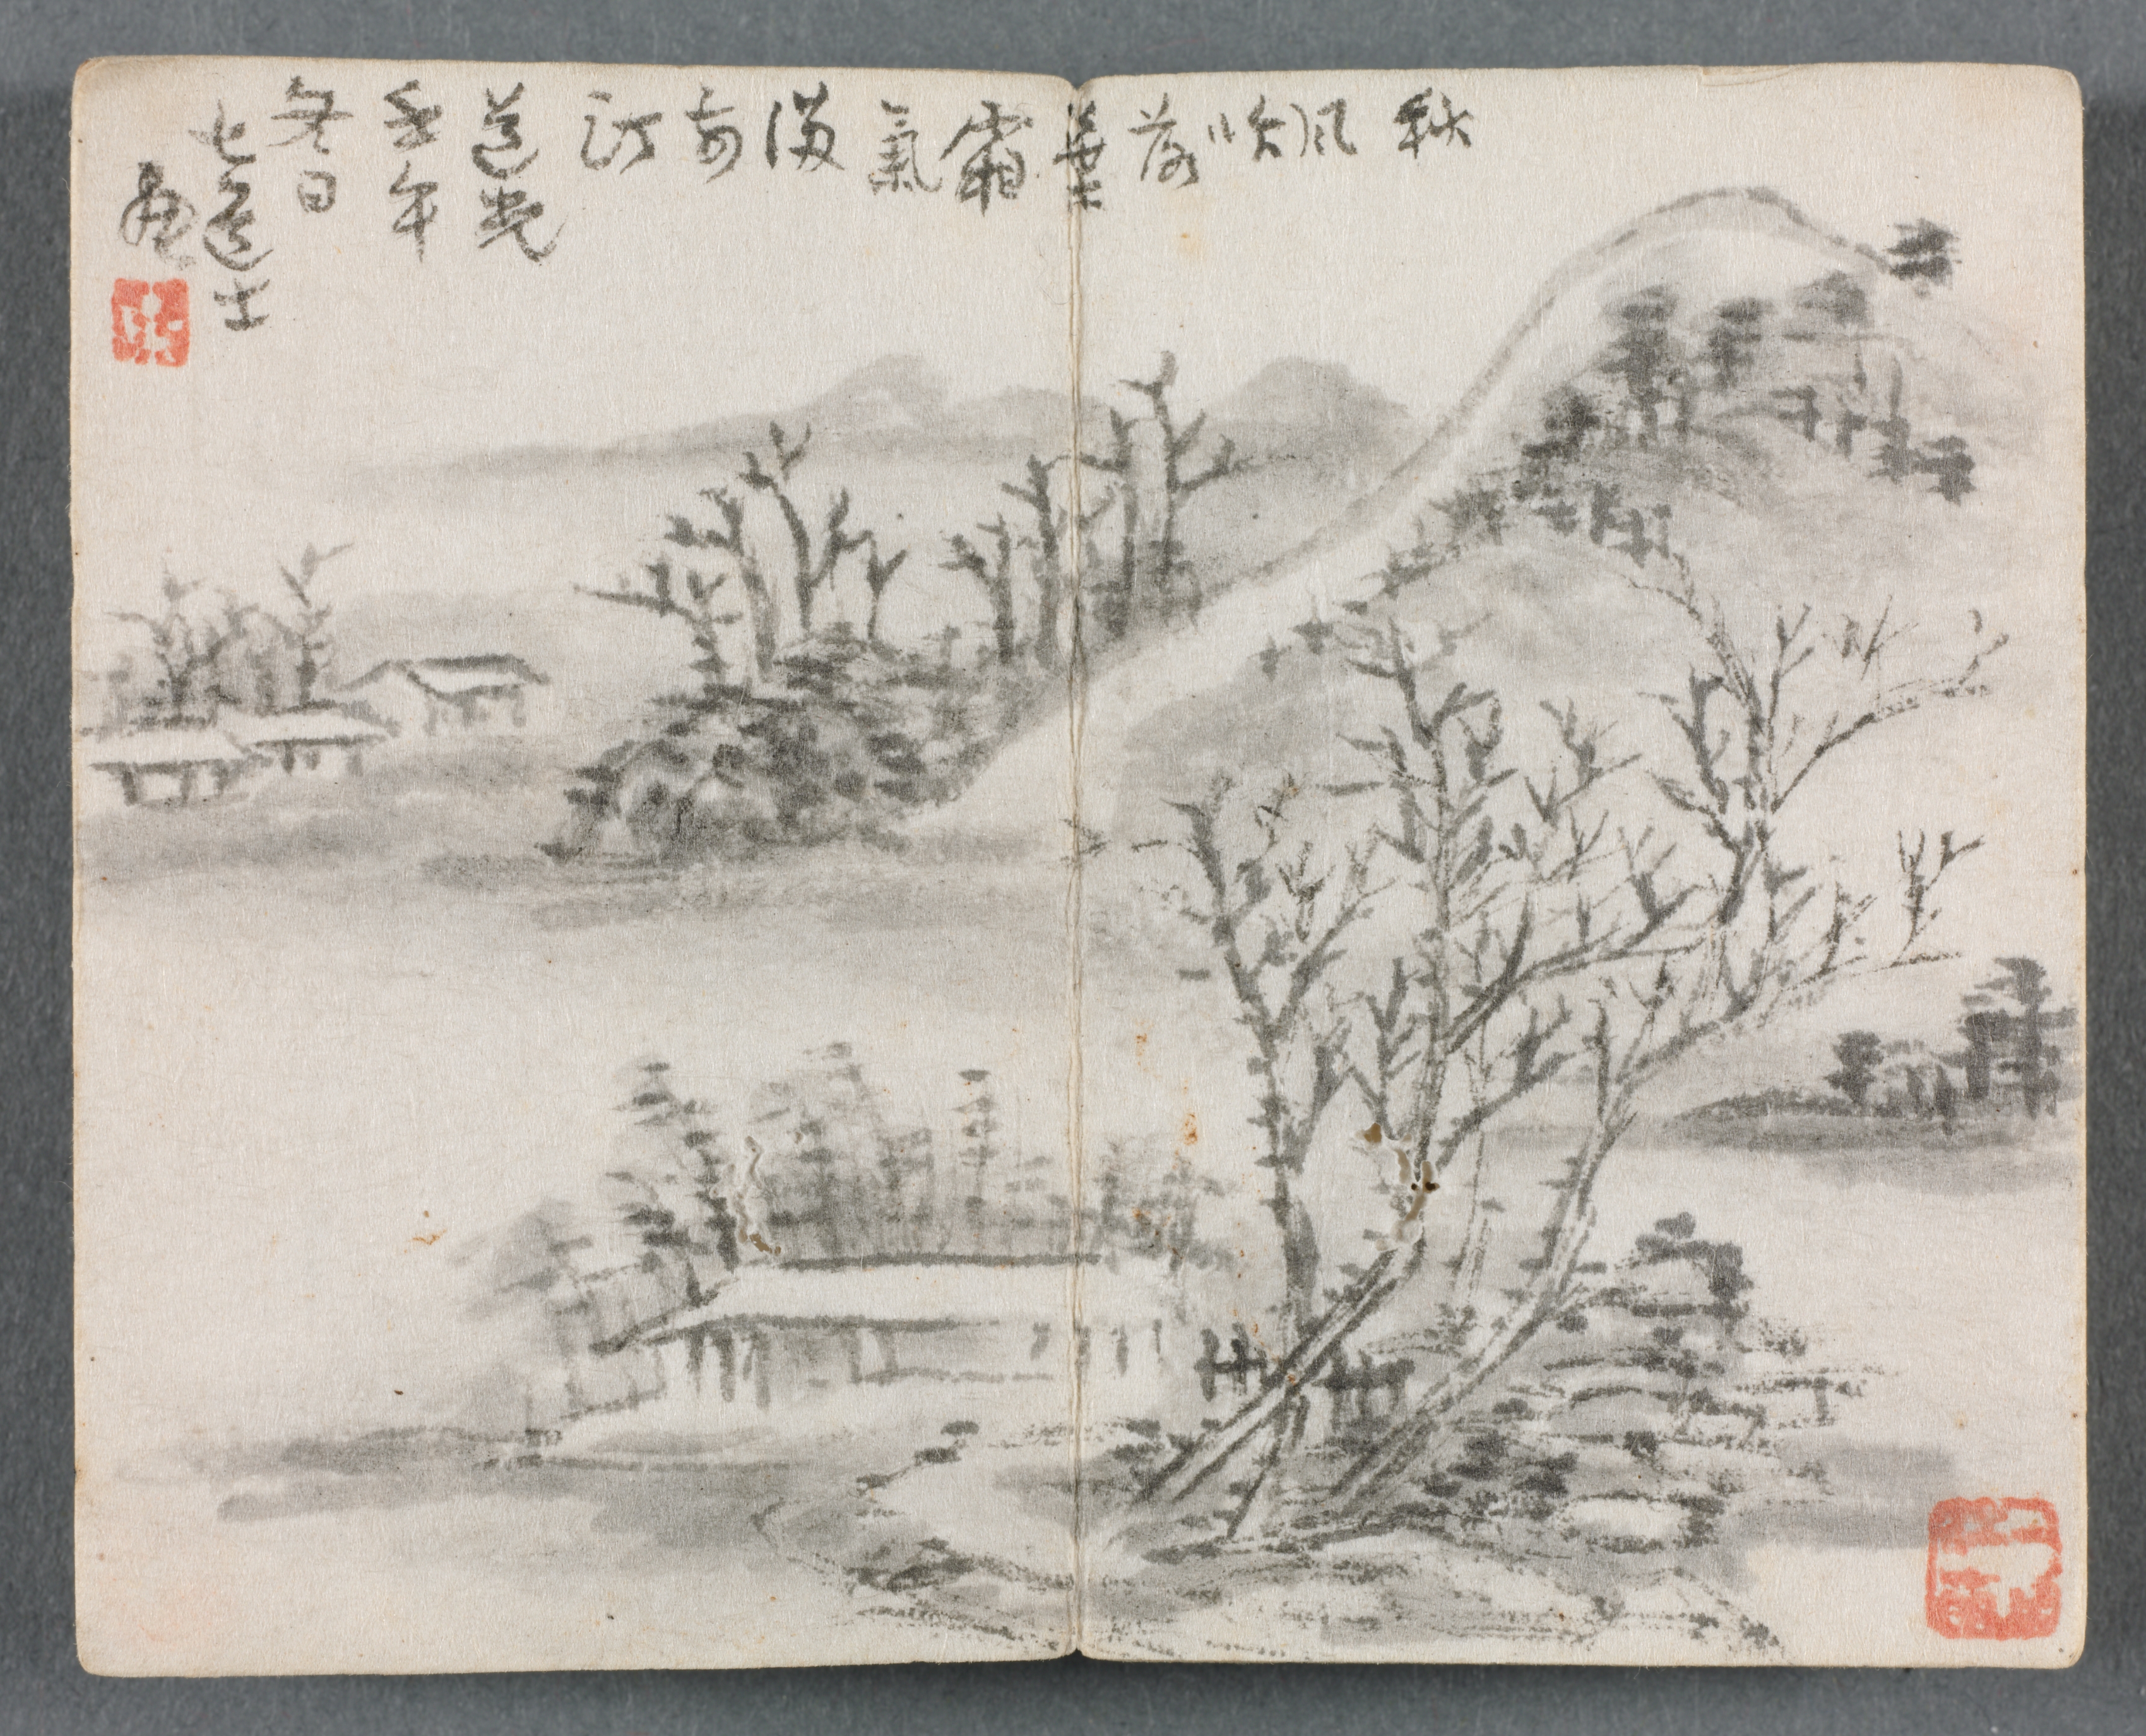 秋風吹落葉霜氣滿前汀
道光
壬午
冬日
七道士
畫